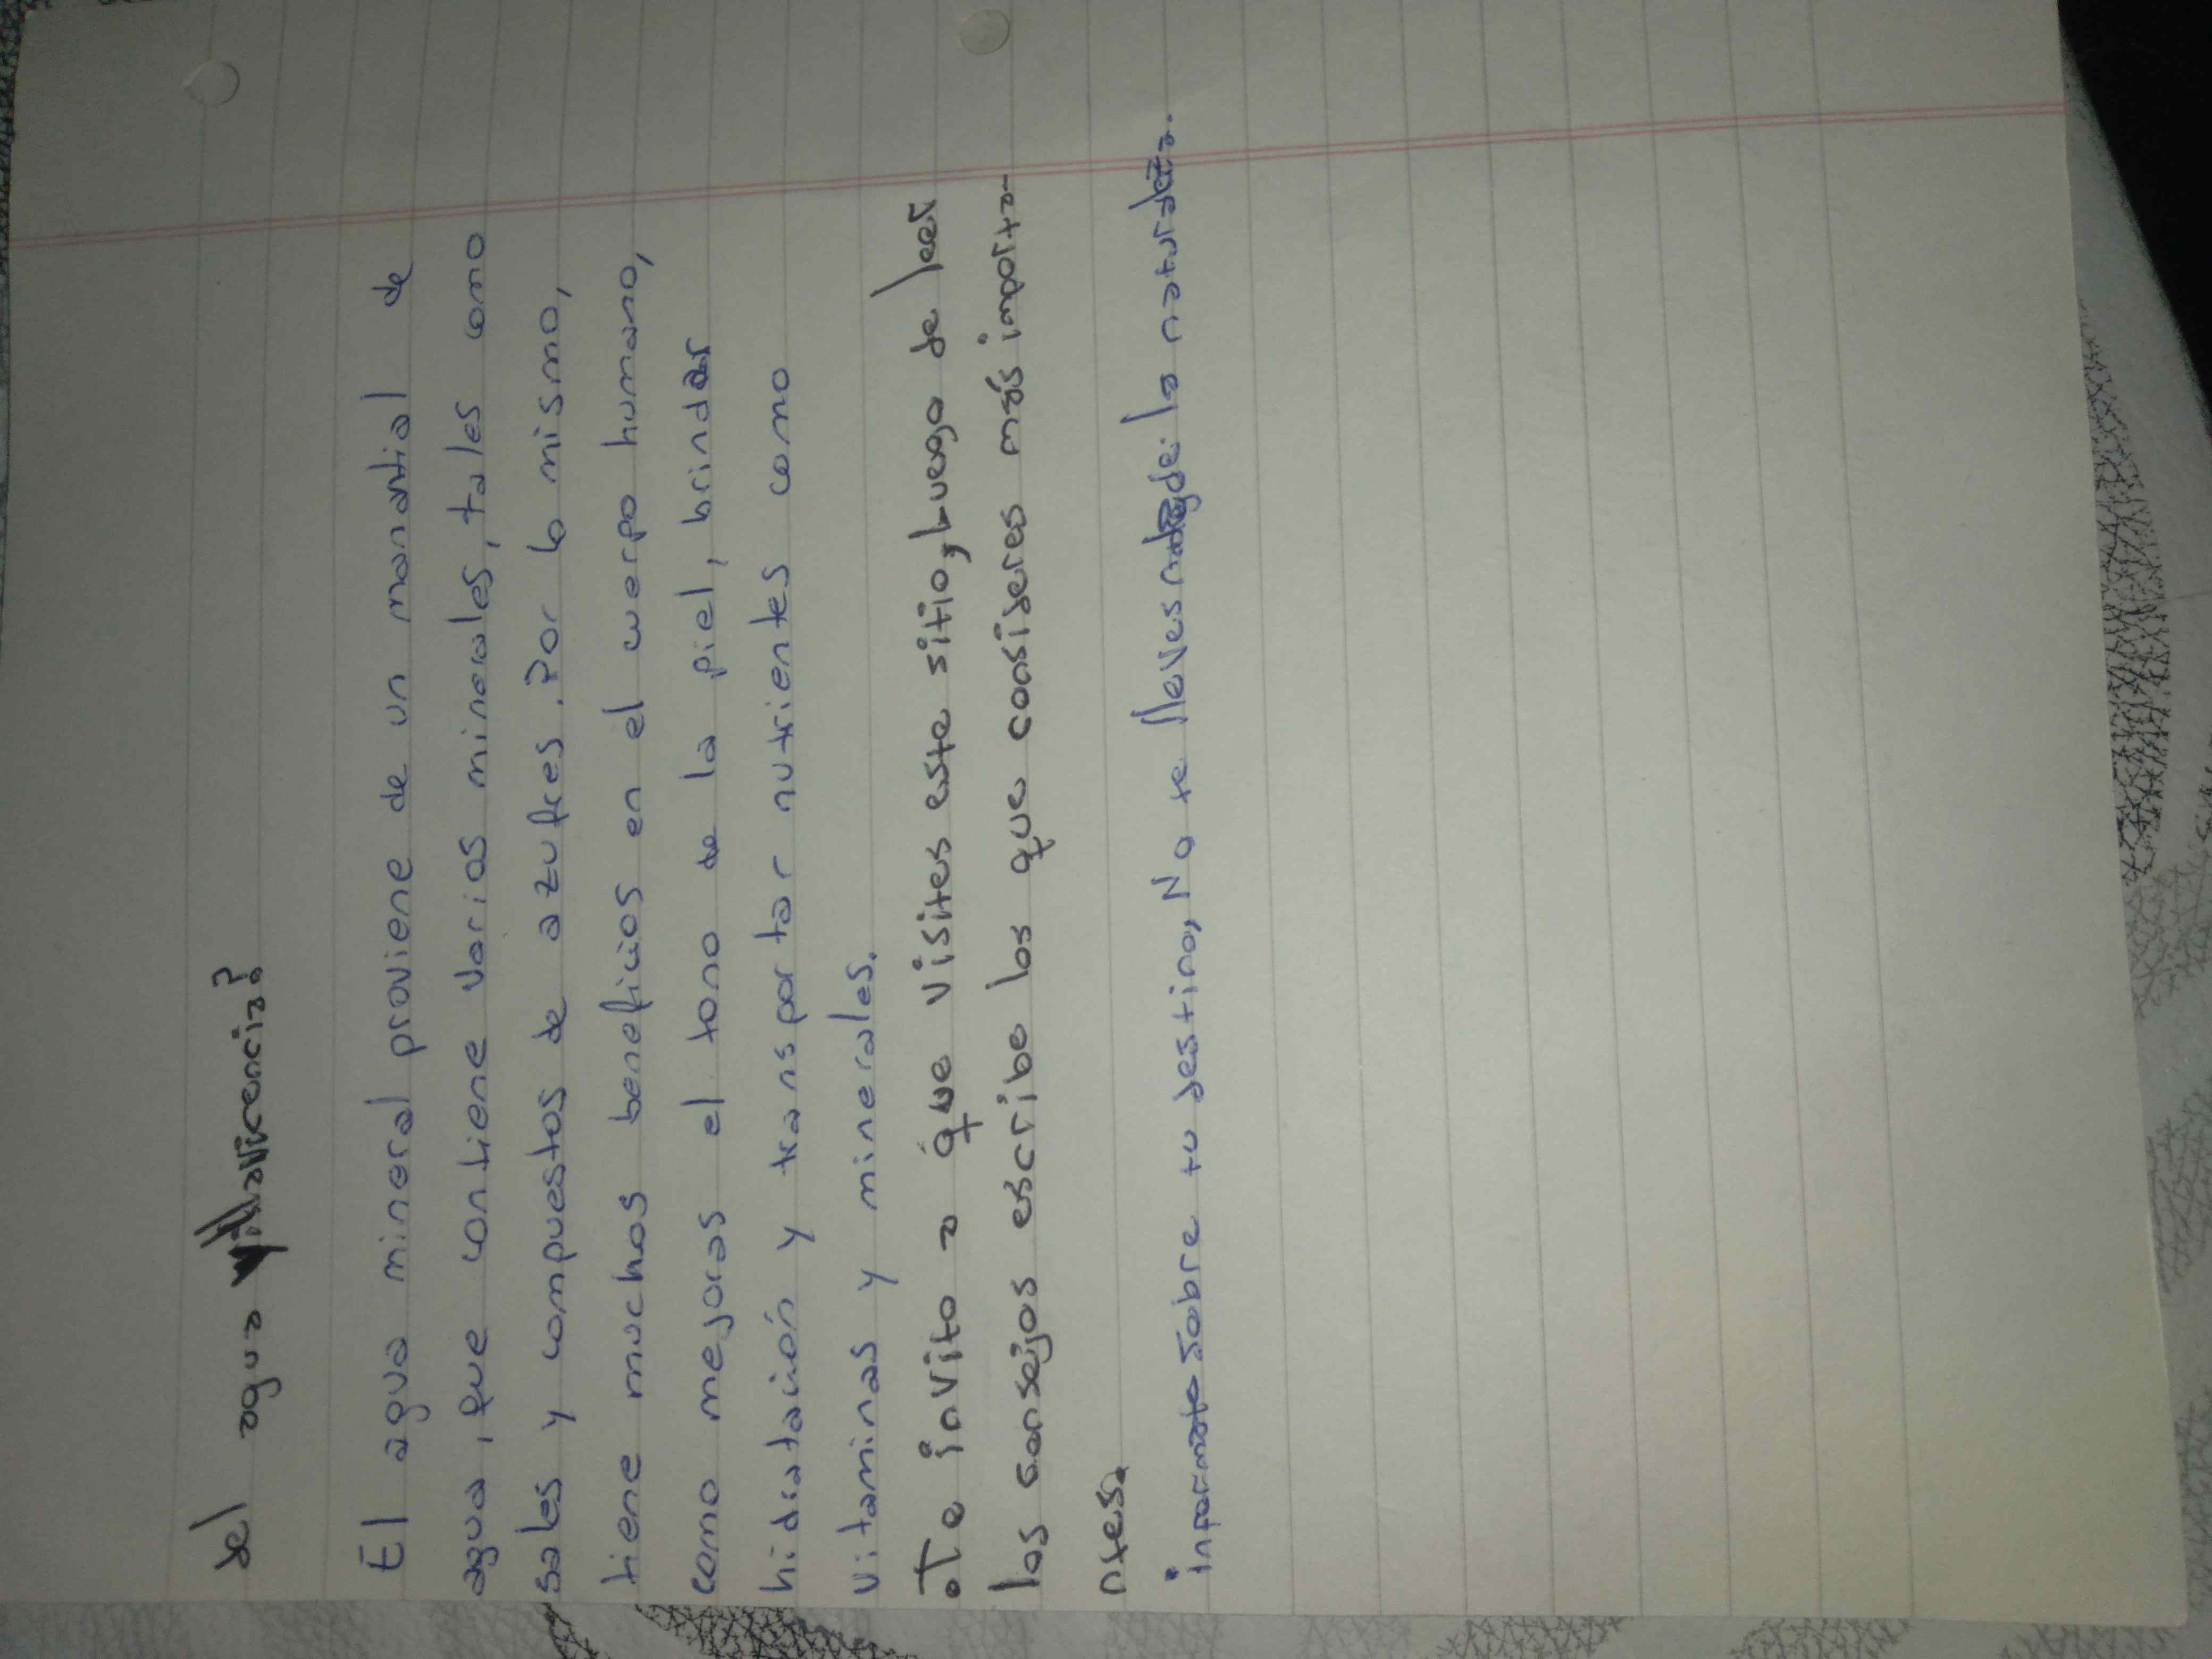 del agua Villavicencia?
El agua mineral proviene de un manantial de
agua, que contiene varios minerales, tales como
sales y compuestos de azufres. Por lo mismo,
tiene muchos beneficios en el cuerpo humano,
como mejoras el tono de la piel, brindar
hidratación y transportar nutrientes como
vitaminas y minerales.
•Te invito a que visites este sitio, Luego de leer
los consejos escribe los que consideres más importa-
ntes.
informate sobre tu destino, No te lleves de la naturaleza.